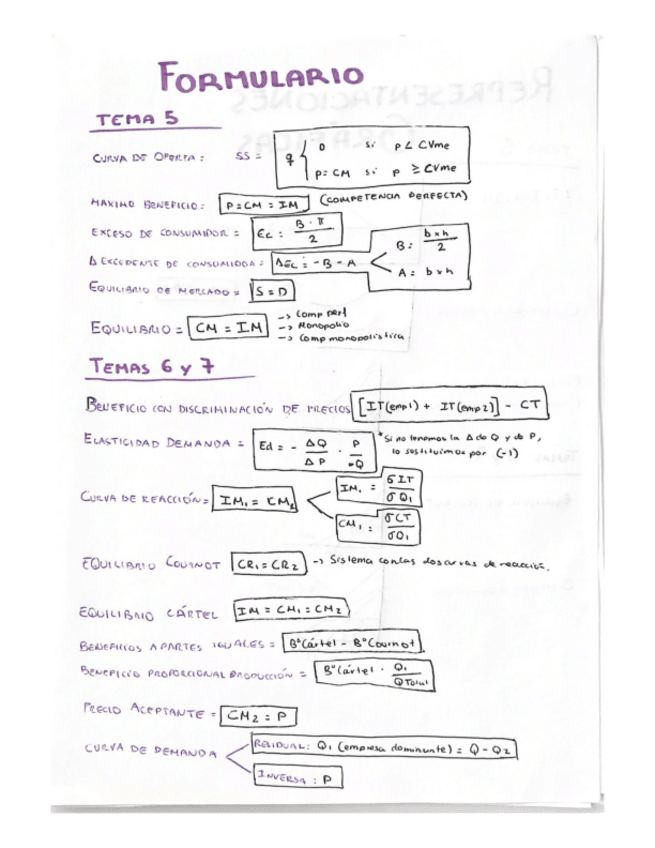 FORMULARIO
TEMA 5
CURVA DE OFERTA: SS = q { 0 si p < CVme
p = CM si p ≥ CVme
MAXIMO BENEFICIO: P = CM = IM (COMPETENCIA PERFECTA)
EXCESO DE CONSUMIDOR = Ec: B · π / 2
Δ EXCEDENTE DE CONSUMIDOA: ΔEC = - B - A
B: b x h / 2
A: b x h
EQUILIBRIO DE MERCADO = S = D
EQUILIBRIO = CM = IM
-> Comp perf
-> Monopolio
-> Comp monopolistica
TEMAS 6 y 7
BENEFICIO CON DISCRIMINACIÓN DE PRECIOS [IT(emp1) + IT(emp2)] - CT
ELASTICIDAD DEMANDA = Ed = - ΔQ / ΔP · P / Q
*Si no tenemos la Δ de Q y de P,
lo sustituimos por (-1)
CURVA DE REACCIÓN = IM₁ = CM₂
IM₁ = σIT / σQ₁
CM₁ = σCT / σQ₁
EQUILIBRIO COURNOT CR₁ = CR₂ -> Sistema con las dos curvas de reacción.
EQUILIBRIO CÁRTEL IM = CM₁ = CM₂
BENEFICIOS A PARTES IGUALES = Bº Cártel - Bº Cournot
BENEFICIO PROPORCIONAL PRODUCCIÓN = Bº Cártel · Q₁ / Q Total
PRECIO ACEPTANTE = CM₂ = P
CURVA DE DEMANDA
RESIDUAL: Q₁ (empresa dominante) = Q - Q₂
INVERSA: P